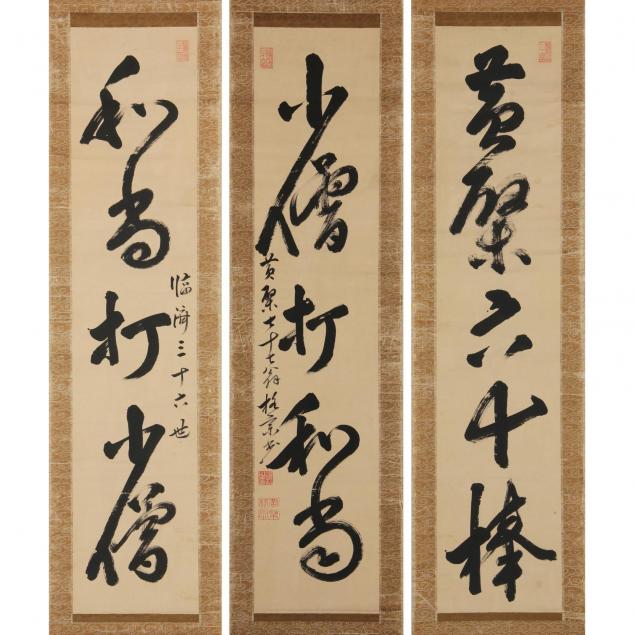 黄檗六十棒
小僧打和尚
黄檗七十七翁格宗書
和尚打少僧
臨濟三十六世